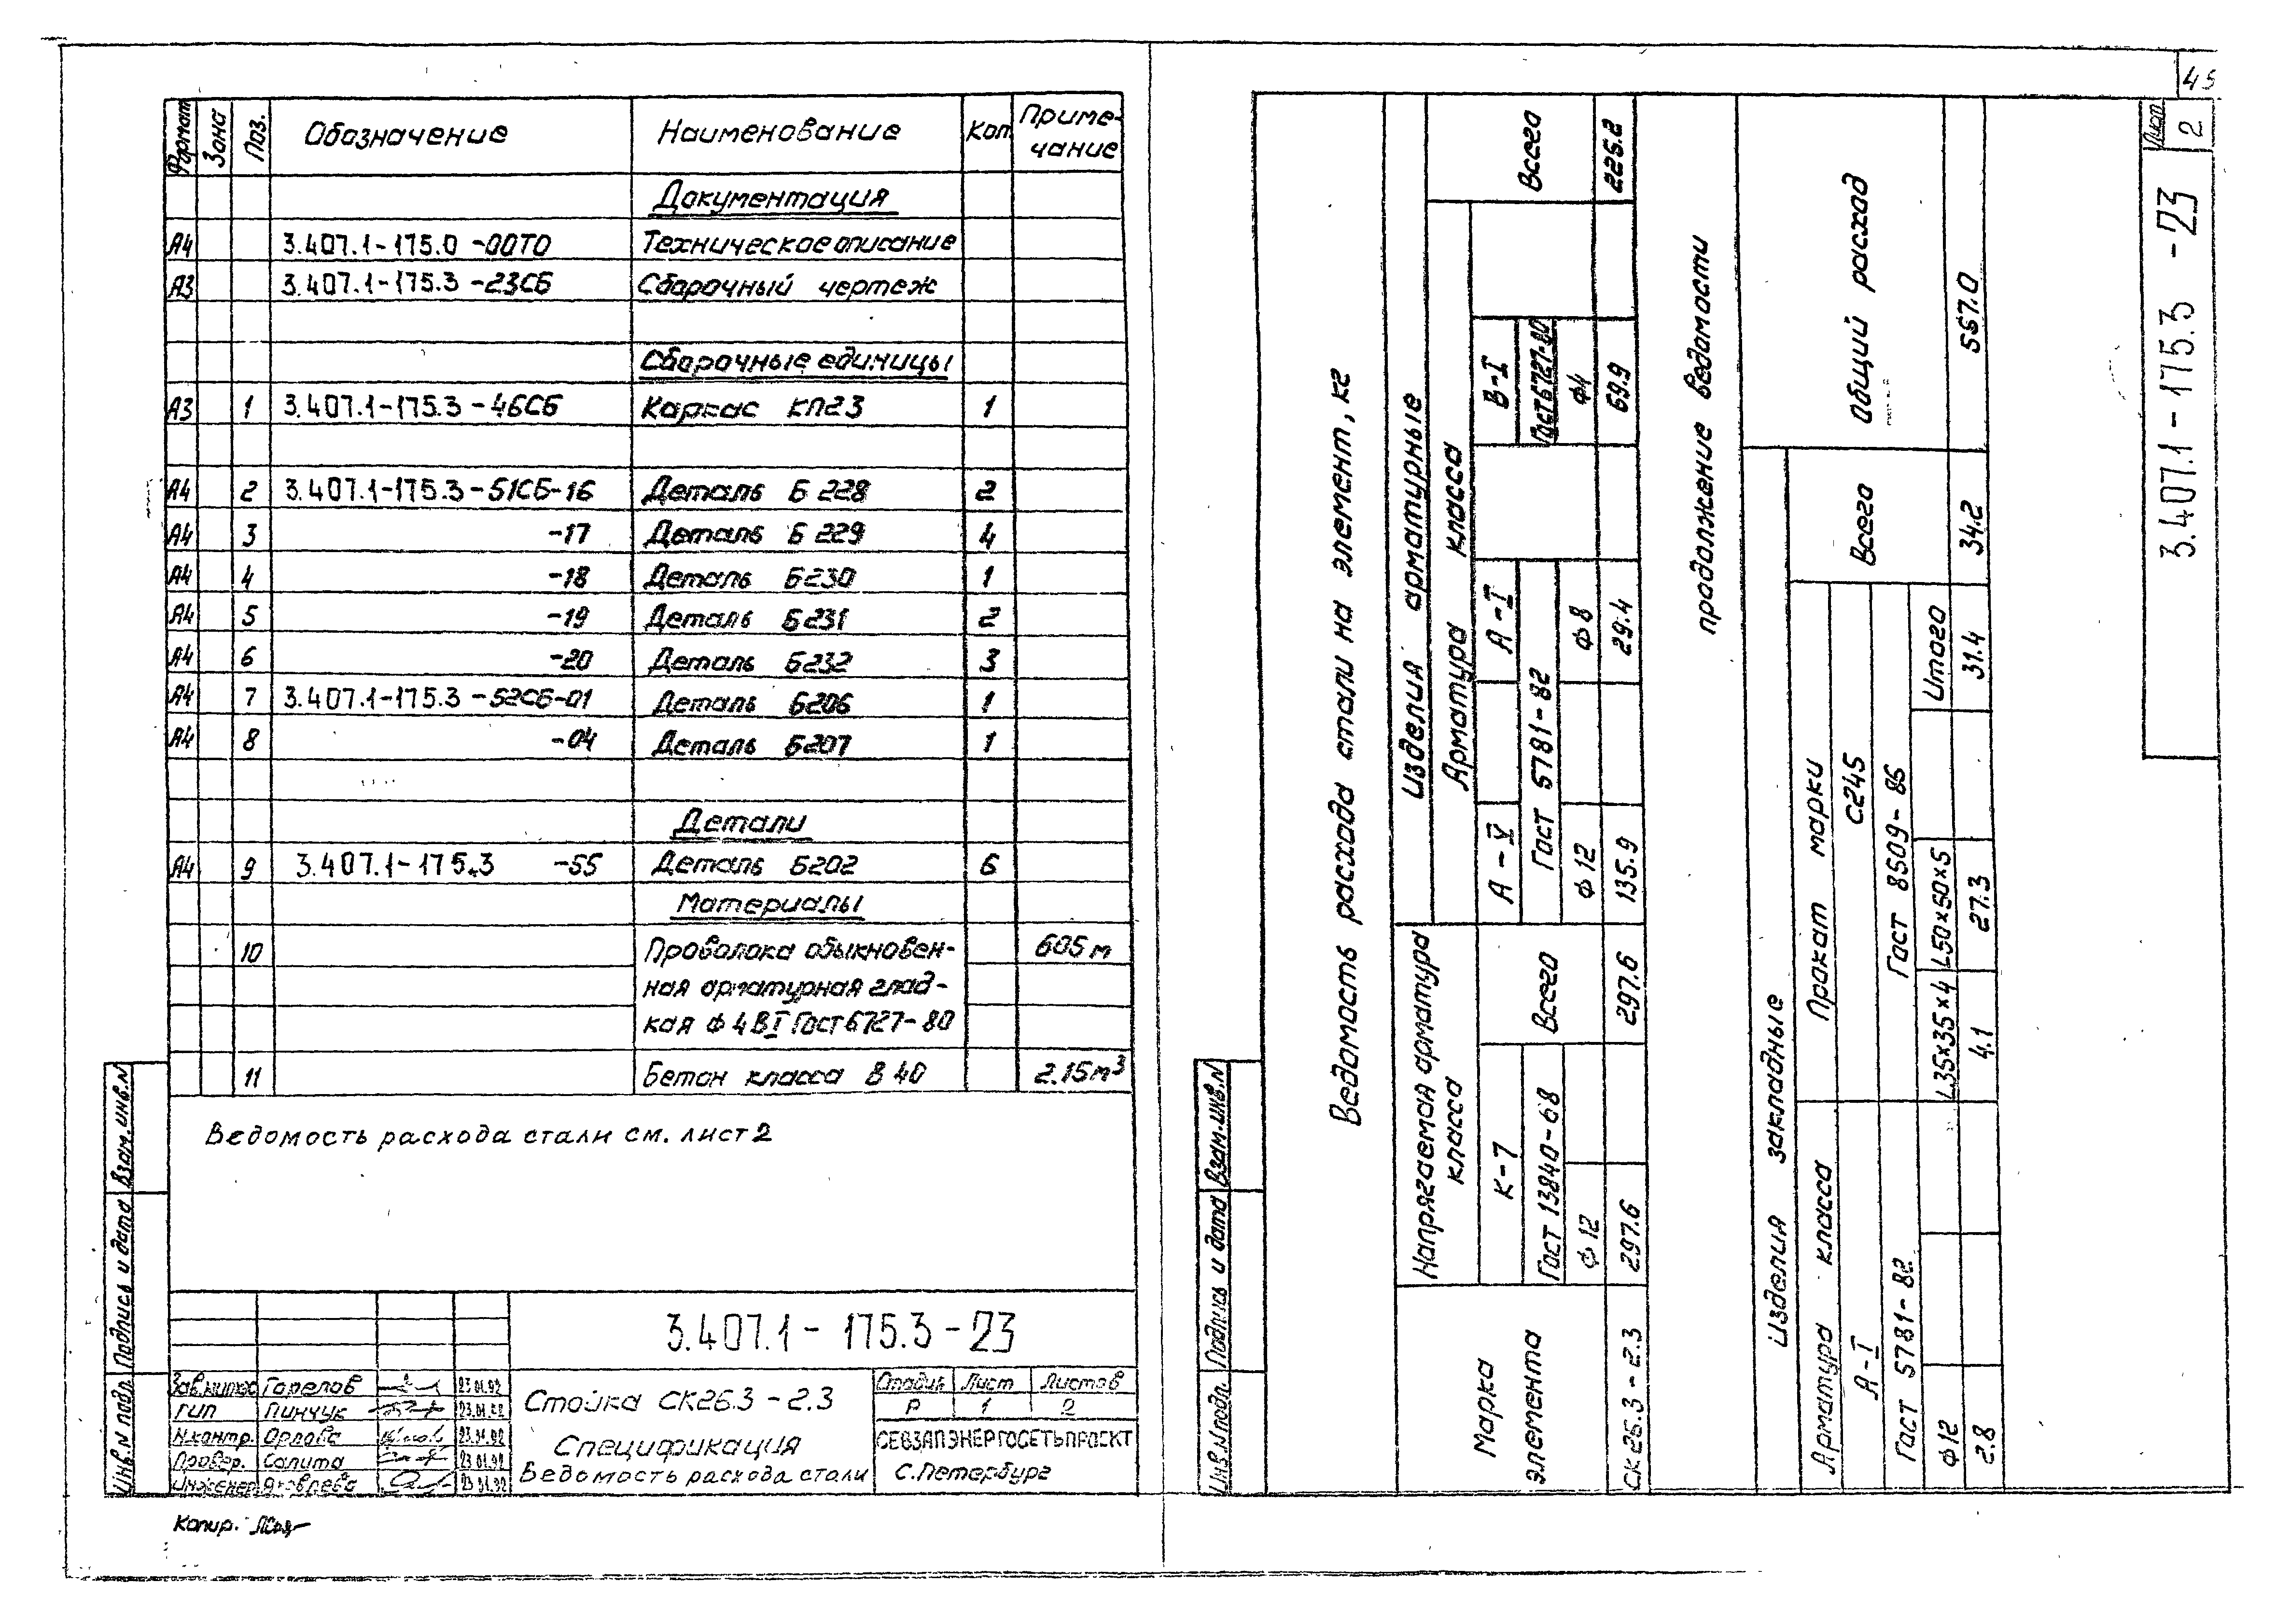 45
Формат Зона Поз. Обозначение Наименование Кол Приме-
чание
Документация
А4 3.407.1-175.0 -00ТО Техническое описание
А3 3.407.1-175.3 -23СБ Сборочный чертеж
Сборочные единицы
А3 1 3.407.1-175.3-46СБ Каркас КП23 1
А4 2 3.407.1-175.3-51СБ-16 Деталь Б 228 2
А4 3 -17 Деталь Б 229 4
А4 4 -18 Деталь Б230 1
А4 5 -19 Деталь Б231 2
А4 6 -20 Деталь Б232 3
А4 7 3.407.1-175.3-52СБ-01 Деталь Б206 1
А4 8 -04 Деталь Б207 1
Детали
А4 9 3.407.1-175.3 -55 Деталь Б202 6
Материалы
10 Проволока обыкновен- 605 м
ная арматурная глад-
кая ф 4 ВI Гост 6727-80
11 Бетон класса В 40 2.15м³
Ведомость расхода стали см. лист 2
Взам. инв. N
Подпись и дата
Инв. N подл.
3.407.1-175.3-23
Горелов 23.01.92
ГИП Пинчук 23.01.92
Н.контр. Орлова 23.01.92
Провер. Салита 23.01.92
Инженер Яковлева 23.01.92
Стойка СК26.3-2.3
Спецификация
Ведомость расхода стали
Стадия Лист Листов
Р 1 2
СЕВЗАПЭНЕРГОСЕТЬПРОЕКТ
С.Петербург
Копир.
Ведомость расхода стали на элемент, кг
Марка
элемента
Напрягаемая арматура
класса
К-7
Гост 13840-68
ф 12
Всего
Изделия арматурные
Арматура класса
А-V А-I
Гост 5781-82
ф 12 ф 8
В-I
Гост 6727-80
ф4
Всего
СК 26.3-2.3 297.6 297.6 135.9 29.4 69.9 226.2
продолжение ведомости
Изделия закладные
Общий расход
Арматура класса
А-I
Гост 5781-82
ф 12
Прокат марки
С245
Гост 8509-86
L35×35×4 L50×50×5 Итого
Всего
2.8 4.1 27.3 31.4 34.2 557.0
Взам. инв. N
Подпись и дата
Инв. N подл.
3.407.1-175.3 -23
Лист
2